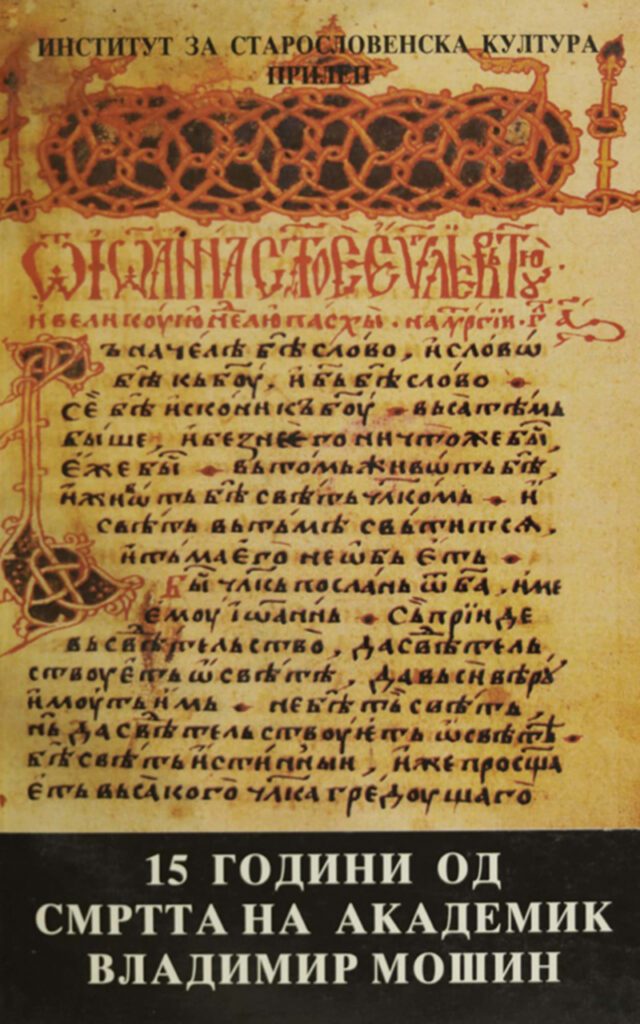 ИНСТИТУТ ЗА СТАРОСЛОВЕНСКА КУЛТУРА
ПРИЛЕП
ѿ іѡанна ст҃ое еѵⷢ҇лїе въ
и великоую не҃лю пасхы
ъ начелѣ бѣ слово, и слово
бѣ къ б҃оу, и б҃ъ бѣ слово
се бѣ искони къ б҃оу въса тѣмь
быше, и без него ничтоже бы҇,
еже бы҇ въ томь живѡть бѣ,
и живѡть бѣ свѣть чл҃комь и
свѣть въ тьмѣ свьтитсѧ,
и тьма его не ѡбьеть
Бы҇ чл҃кь послань ѿ б҃а, име
емоу їѡаннь Сь прїиде
въ свѣдѣтельство, да свѣдѣтель
ствоуеть ѡ свѣтѣ, да вьси вѣроу
имоуть имь не бѣ ть свѣть,
нь да свѣдѣтельствоуеть ѡ свѣтѣ
бѣ свѣть истинныи, иже просвѣща
еть вьсакого чл҃ка гредоущаго
15 ГОДИНИ ОД
СМРТТА НА АКАДЕМИК
ВЛАДИМИР МОШИН